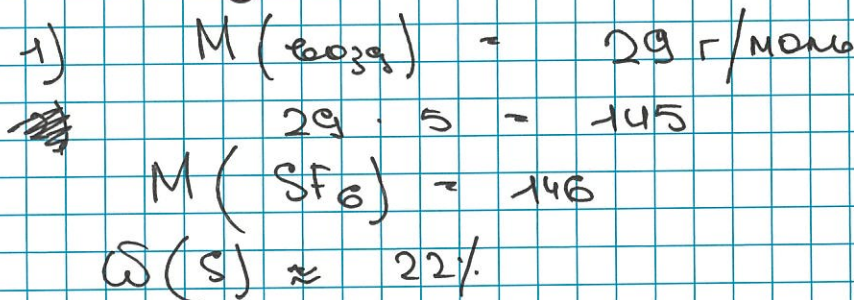 1) M(возд) = 29 г/моль
29 · 5 = 145
M(SF6) = 146
ω(S) ≈ 22%